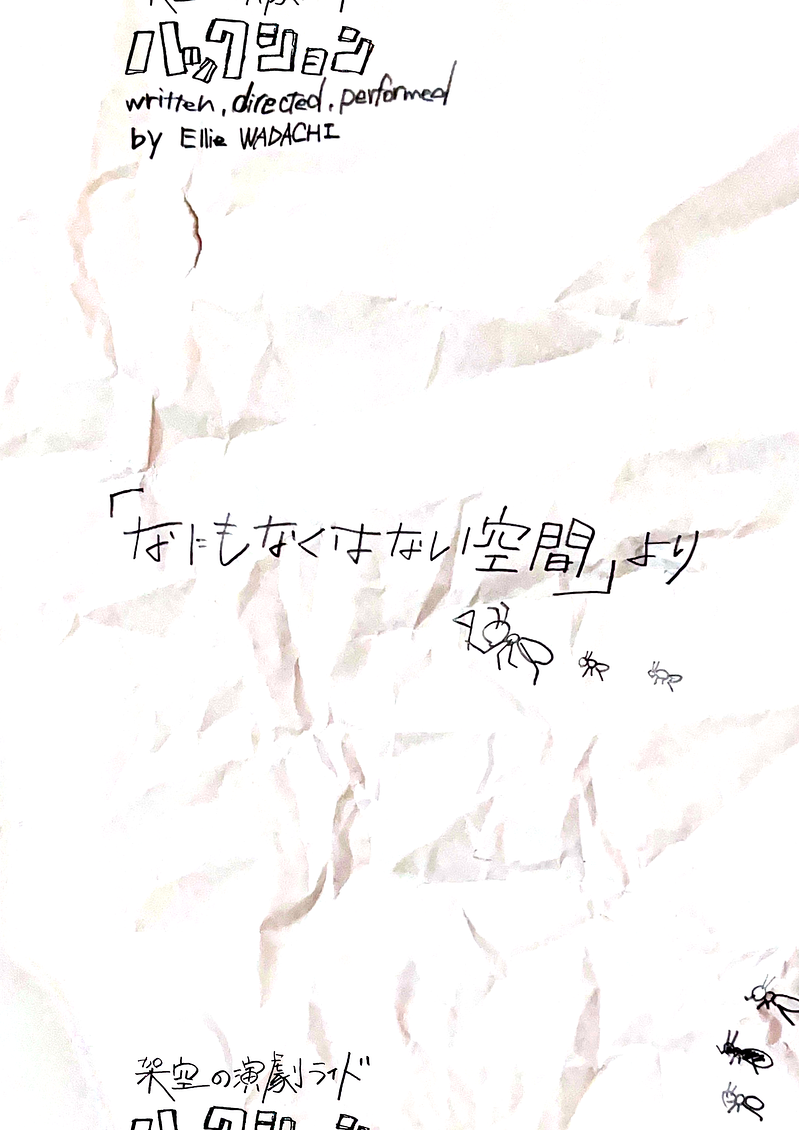 ハックション
written, directed, performed
by Ellie WADACHI
「なにもなくはない空間」より
架空の演劇ライド